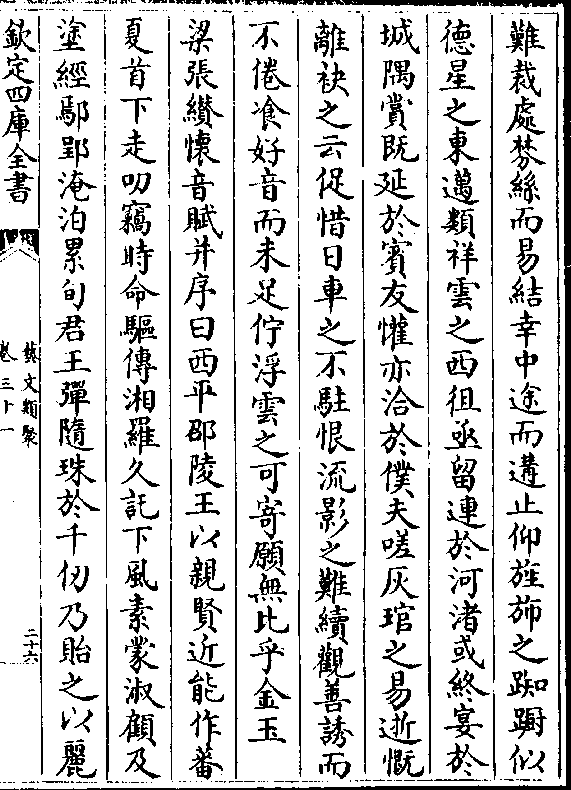 難裁處棼絲而易結幸中途而遘止仰旌斾之踟躕似
德星之東邁類祥雲之西徂亟留連於河渚或終宴於
城隅賞既延於賓友懽亦洽於僕夫嗟灰琯之易逝慨
離袂之云促惜日車之不駐恨流影之難續觀善誘而
不倦飡好音而未足佇浮雲之可寄願無比乎金玉
梁張纉懷音賦并序曰西平邵陵王以親賢近能作蕃
夏首下走叨竊時命驅傳湘羅久託下風素蒙淑顧及
塗經鄢郢淹泊累旬君王彈隨珠於千仞乃貽之以麗
欽定四庫全書
藝文類聚
卷三十一
二十六